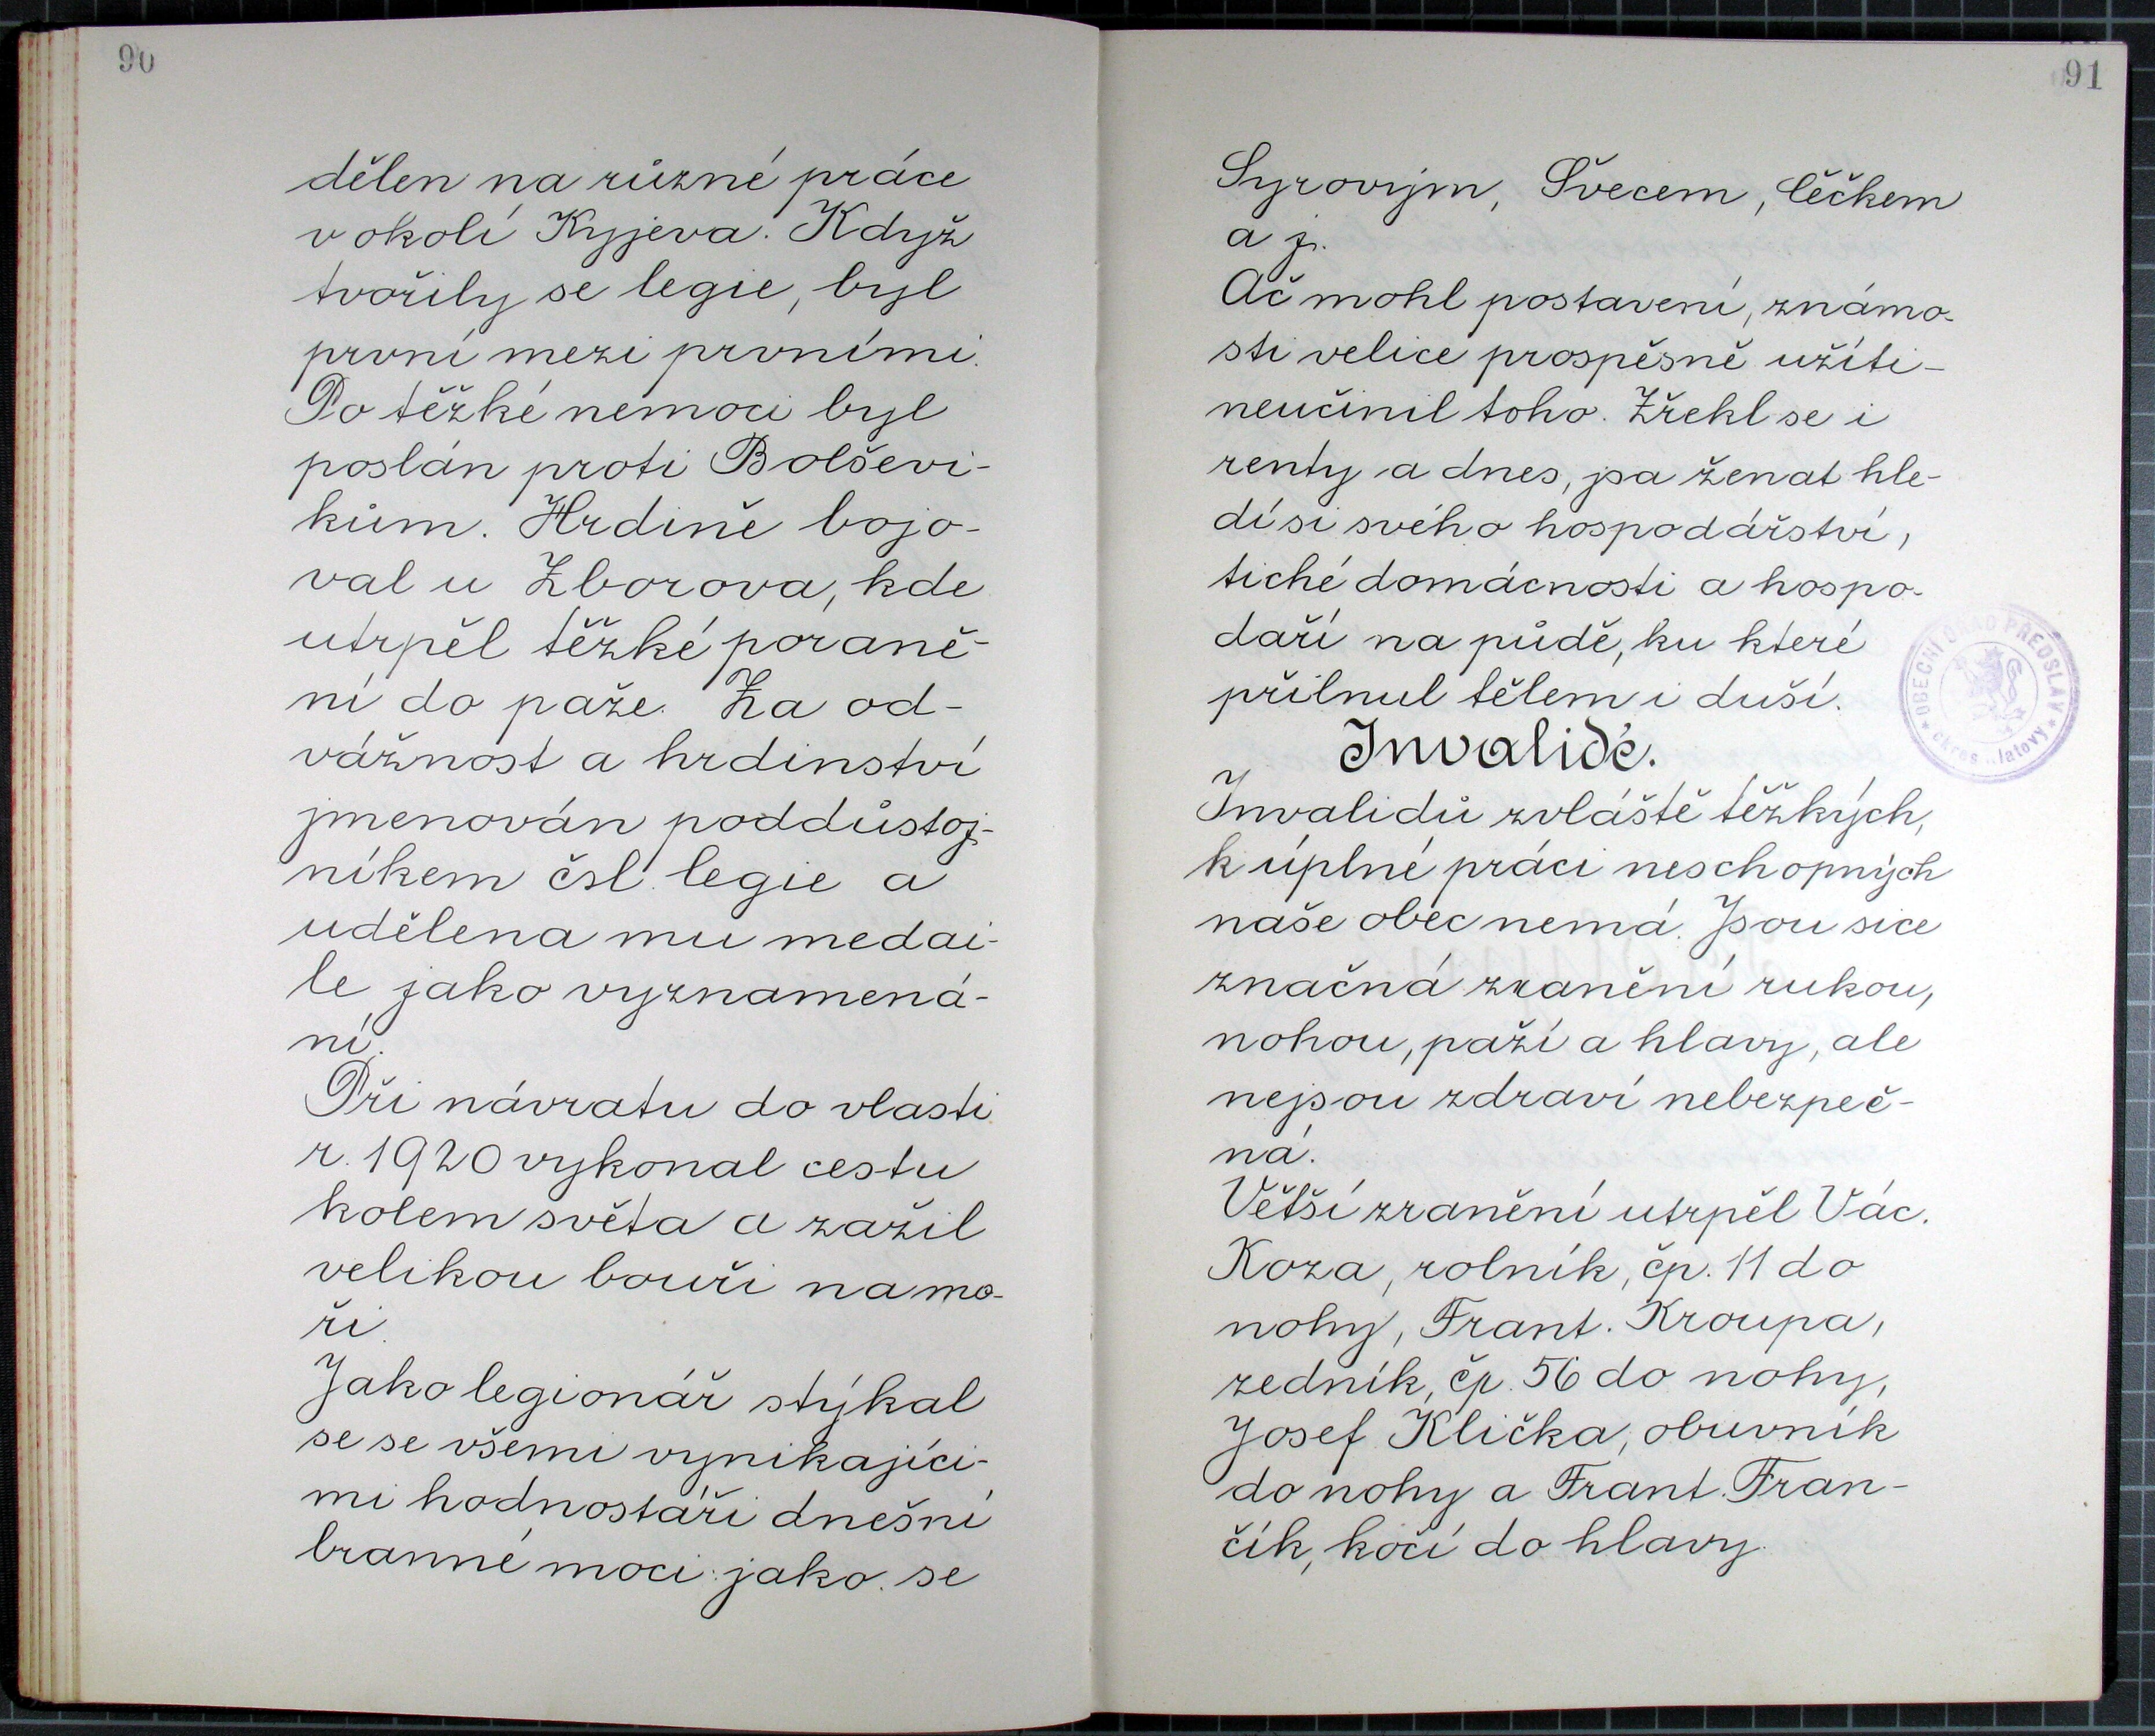 90
dělen na různé práce
v okolí Kyjeva. Když
tvořily se legie, byl
první mezi prvními.
Po těžké nemoci byl
poslán proti Bolševi-
kům. Hrdině bojo-
val u Zborova, kde
utrpěl těžké poraně-
ní do paže. Za od-
vážnost a hrdinství
jmenován poddůstoj-
níkem čsl. legie a
udělena mu medai-
le jako vyznamená-
ní.
Při návratu do vlasti
r. 1920 vykonal cestu
kolem světa a zažil
velikou bouři na mo-
ři.
Jako legionář stýkal
se se všemi vynikající-
mi hodnostáři dnešní
branné moci: jako. se
91
Syrovým, Švecem, Čéčkem
a j.
Ač mohl postavení, známo-
sti velice prospěsně užíti -
neučinil toho. Zřekl se i
renty a dnes, jsa ženat hle-
dí si svého hospodářství,
tiché domácnosti a hospo-
daří na půdě, ku které
přilnul tělem i duší.
OBECNÍ ÚŘAD PŘEDSLAV
okres Klatovy
Invalidé.
Invalidů zvláště těžkých,
k úplné práci neschopných
naše obec nemá. Jsou sice
značná zranění rukou,
nohou, paží a hlavy, ale
nejsou zdraví nebezpeč-
ná.
Větší zranění utrpěl Vác.
Koza, rolník, čp. 11 do
nohy, Frant. Kroupa,
zedník, čp. 56 do nohy,
Josef Klička, obuvník
do nohy a Frant. Fran-
čík, kočí do hlavy.